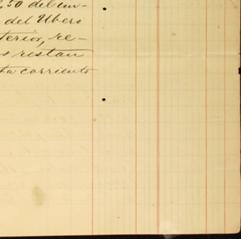 ,50 del im-
del Ubero
terior, re-
s restan
ta corriente